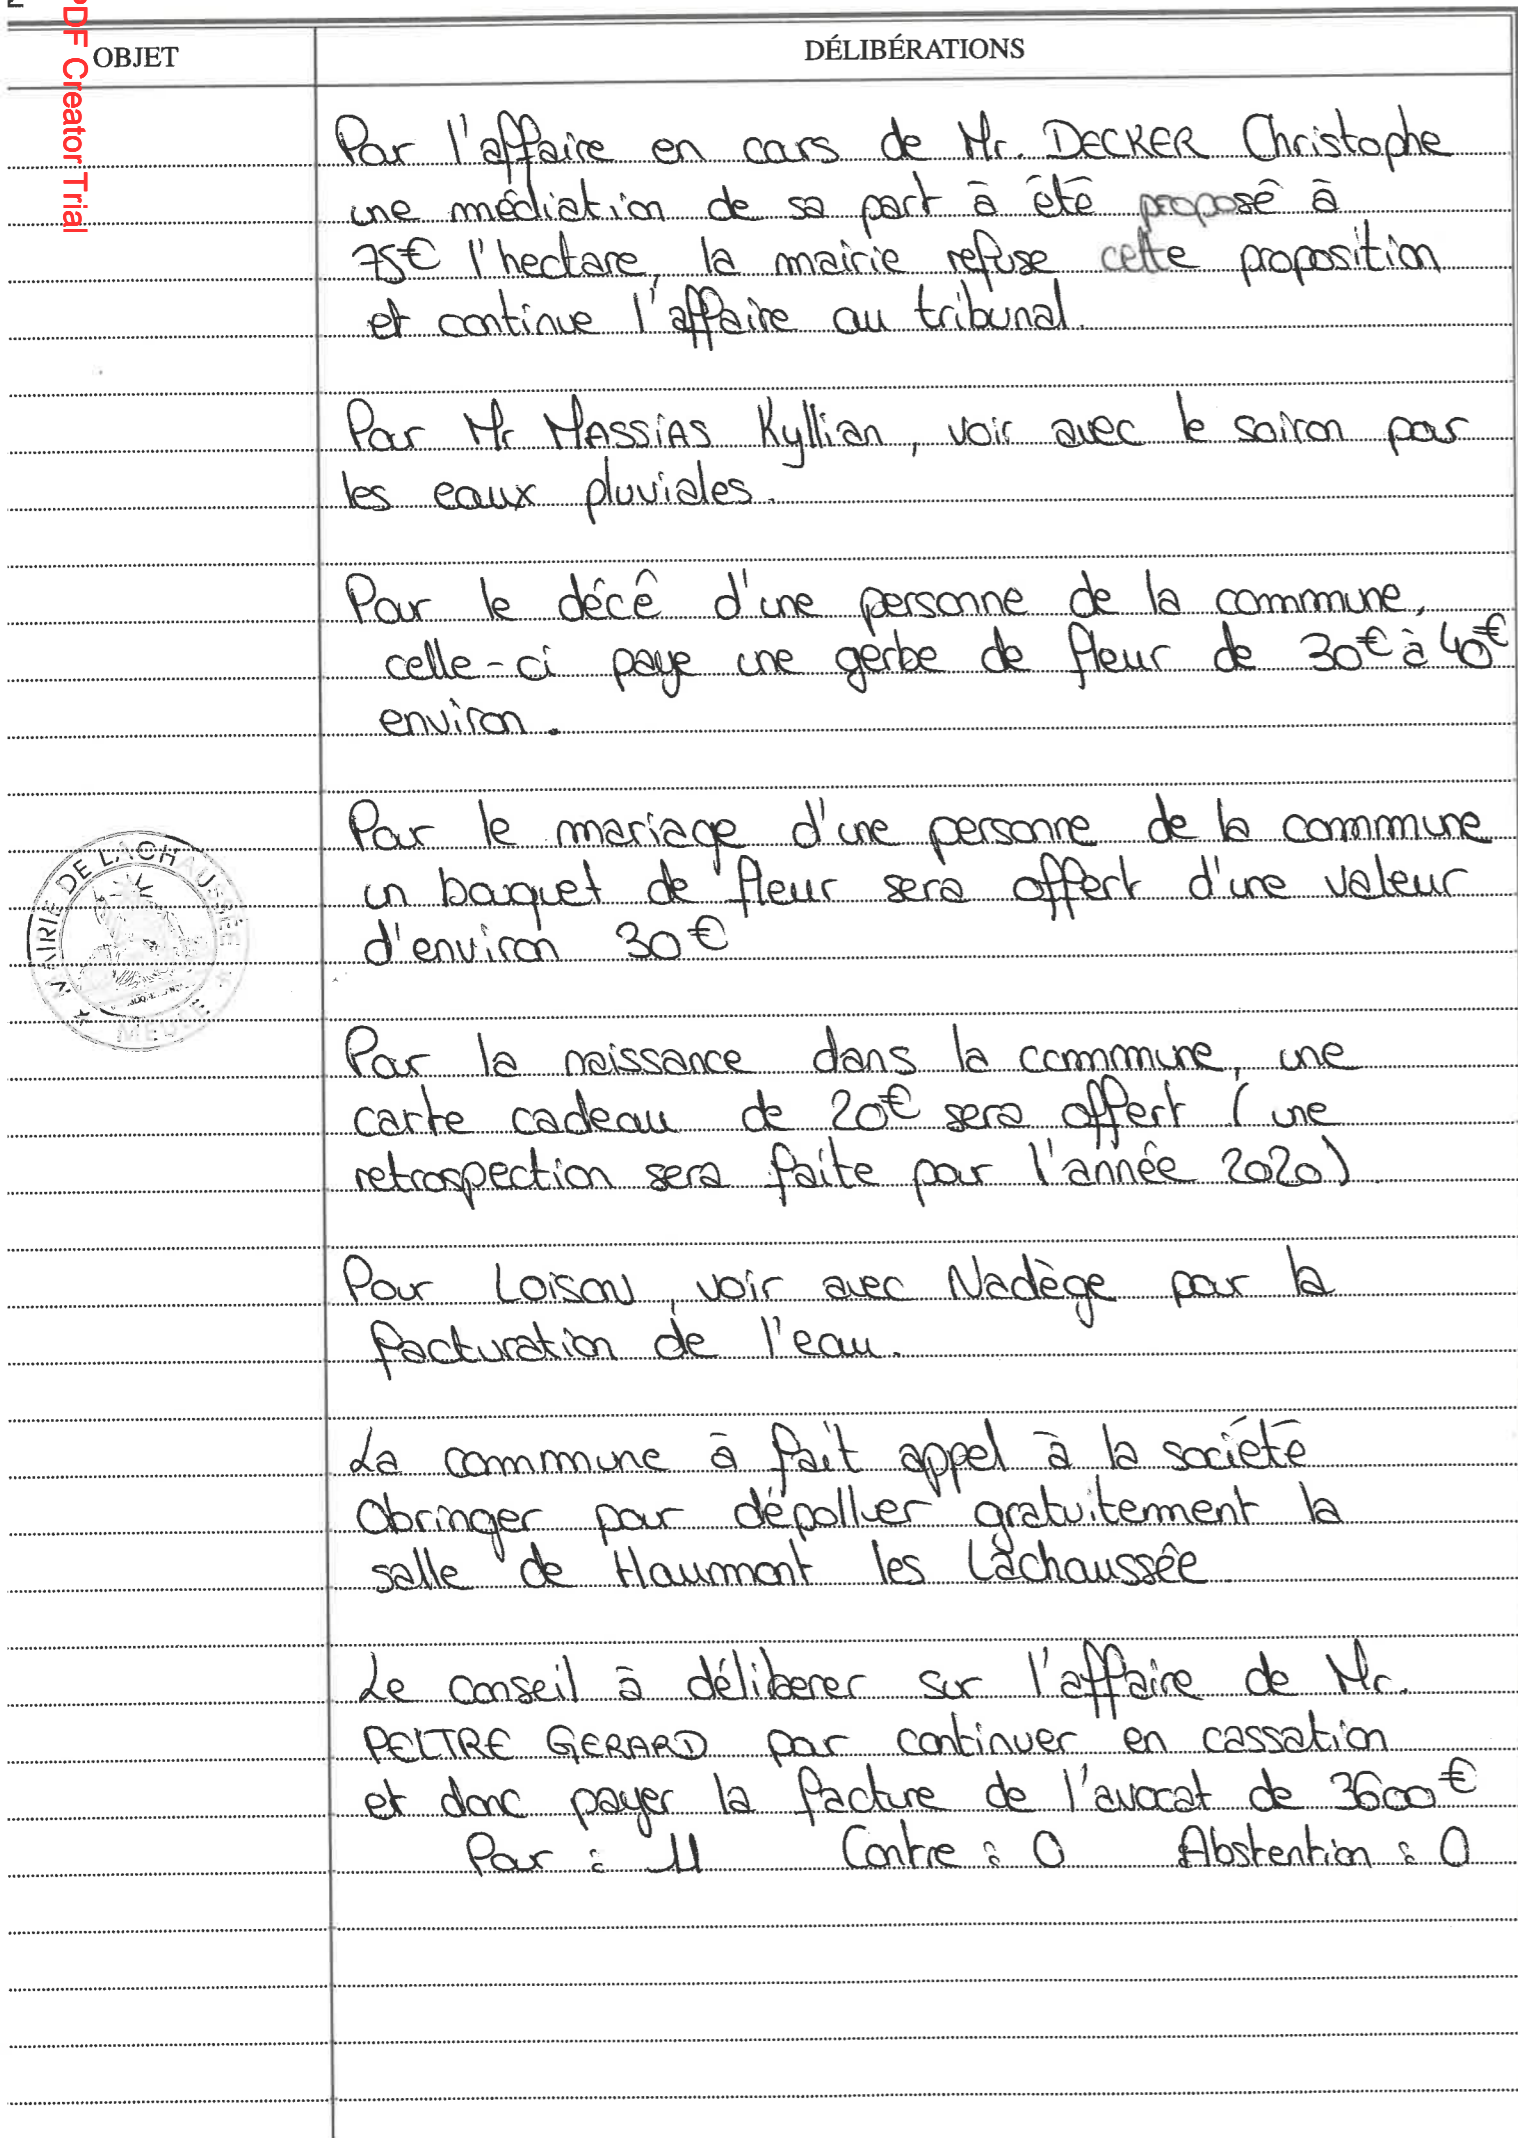 PDF Creator Trial
OBJET
DÉLIBÉRATIONS
Pour l'affaire en cours de Mr. DECKER Christophe
une médiation de sa part à été proposé à
75€ l'hectare, la mairie refuse cette proposition
et continue l'affaire au tribunal.
Pour Mr MASSIAS Kyllian, voir avec le soiron pour
les eaux pluviales.
Pour le décê d'une personne de la commune,
celle-ci paye une gerbe de fleur de 30€ à 40€
environ.
Pour le mariage d'une personne de la commune
un bouquet de fleur sera offert d'une valeur
d'environ 30€
MAIRIE DE LACHAUSSÉE
MEUSE
Pour la naissance dans la commune, une
carte cadeau de 20€ sera offert (une
retrospection sera faite pour l'année 2020)
Pour LOISON, voir avec Nadège pour la
facturation de l'eau.
La commune à fait appel à la société
Obringer pour dépolluer gratuitement la
salle de Haumont les Lachaussée.
Le conseil à déliberer sur l'affaire de Mr.
PELTRE GERARD pour continuer en cassation
et donc payer la facture de l'avocat de 3600€
Pour : 11 Contre : 0 Abstention : 0